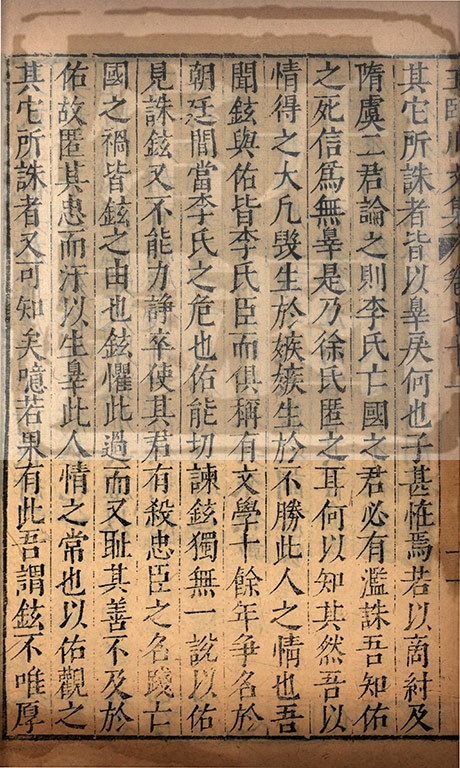 臨川文集 卷七十一
其它所誅者皆以辠戾何也子甚恠焉若以商紂及
隋虞二君論之則李氏亡國之君必有濫誅吾知佑
之死信爲無辠是乃徐氏匿之耳何以知其然吾以
情得之大凡毀生於嫉嫉生於不勝此人之情也吾
聞鉉與佑皆李氏臣而俱稱有文學十餘年爭名於
朝廷間當李氏之危也佑能切諫鉉獨無一說以佑
見誅鉉又不能力諍卒使其君有殺忠臣之名踐亡
國之禍皆鉉之由也鉉懼此過而又耻其善不及於
佑故匿其忠而汙以生辠此人情之常也以佑觀之
其它所誅者又可知矣噫若果有此吾謂鉉不唯厚